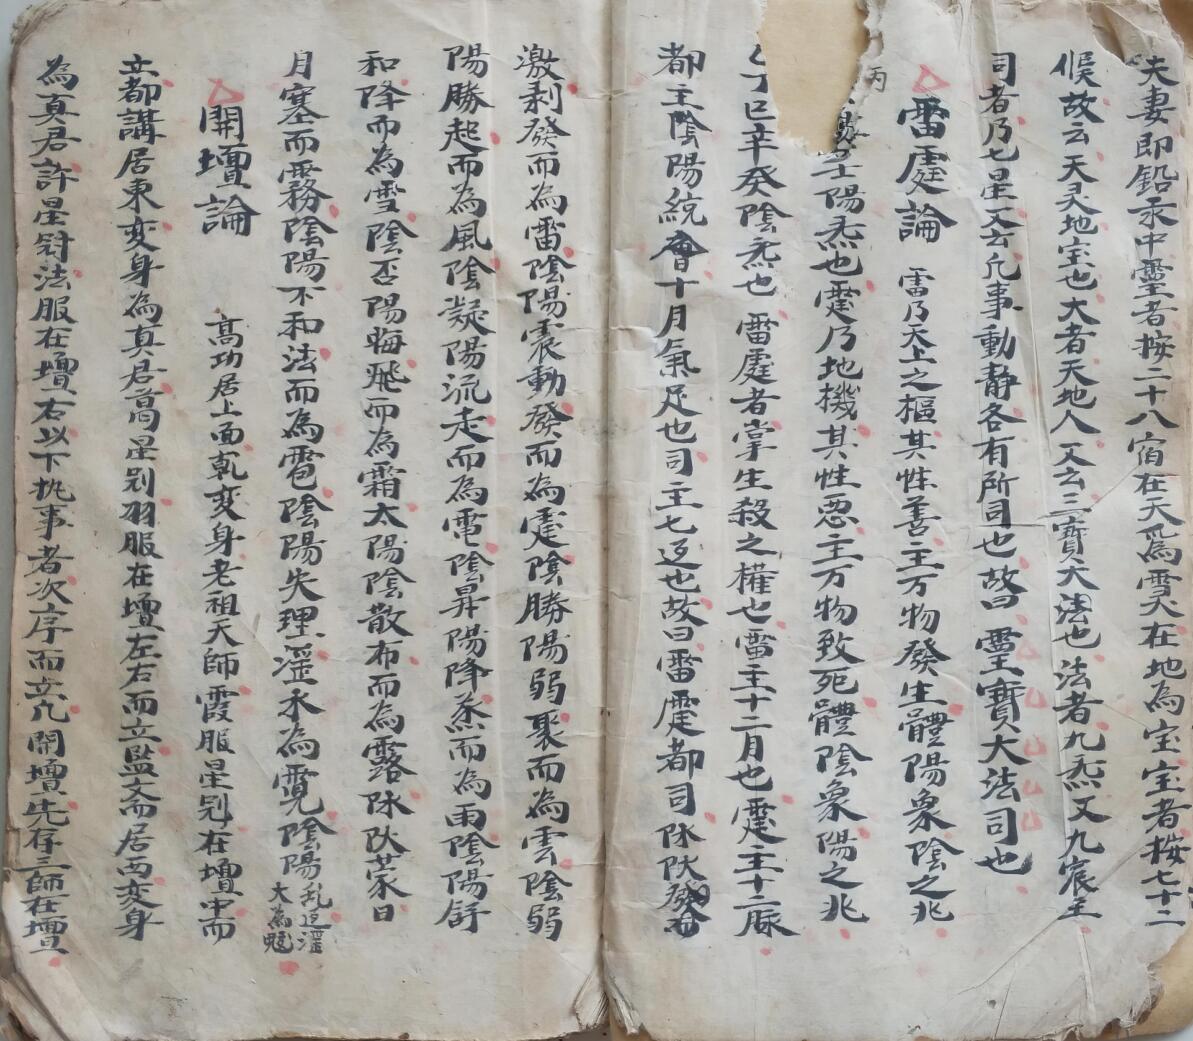 夫妻即铅汞中靈者按二十八宿在天為雪大在地為宝宝者按七十二
候故云天灵地宝也大者天地人又云三寶大法也法者九炁又九宸主
司者乃七星又云凡事動静各有所司也故曰靈寶大法司也
雷霆論 雷乃天上之樞其性善主万物發生體陽象陰之兆
主陽炁也霆乃地機其性恶主万物致死體陰象陽之兆
丙
丁巳辛癸陰炁也雷霆者掌生殺之權也雷主十二月也霆主十二脈
都主陰陽統會十月氣足也司主七迢也故曰雷霆都司陎陎發
激剥發而為雷陰陽震動發而為霆陰勝陽弱聚而為雲陰弱
陽勝起而為風陰凝陽流走而為電陰昇陽降蒸而為雨陰陽舒
和降而為雪陰否陽晦飛而為霜太陽陰散布而為露陎陎蒙日
月塞而霧陰陽不和法而為雹陰陽失理滛水為霓陰陽乱迢滛大為魃
開壇論 高功居上面乾变身老祖天師霞服星冠在壇中而
立都講居東变身為真君葛星冠羽服在壇左右而立監文而居西变身
為真君許星冠法服在壇右以下执事者次序而立凡開壇先存三師在壇